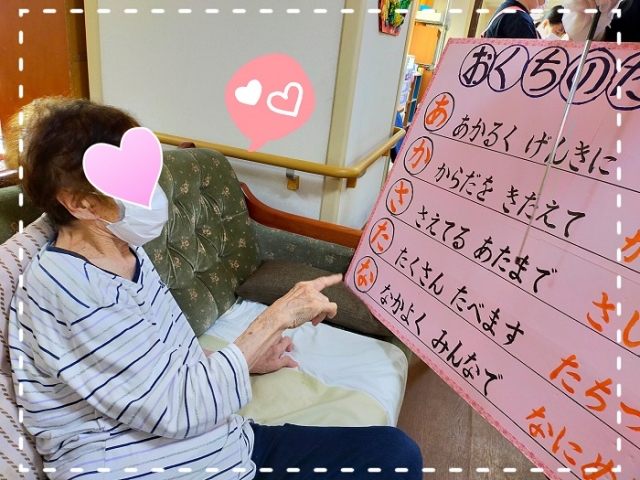 おくちのた
あ あかるく げんきに
か からだを きたえて
さ さえてる あたまで
た たくさん たべます
な なかよく みんなで
か
さし
たちつ
なにぬ